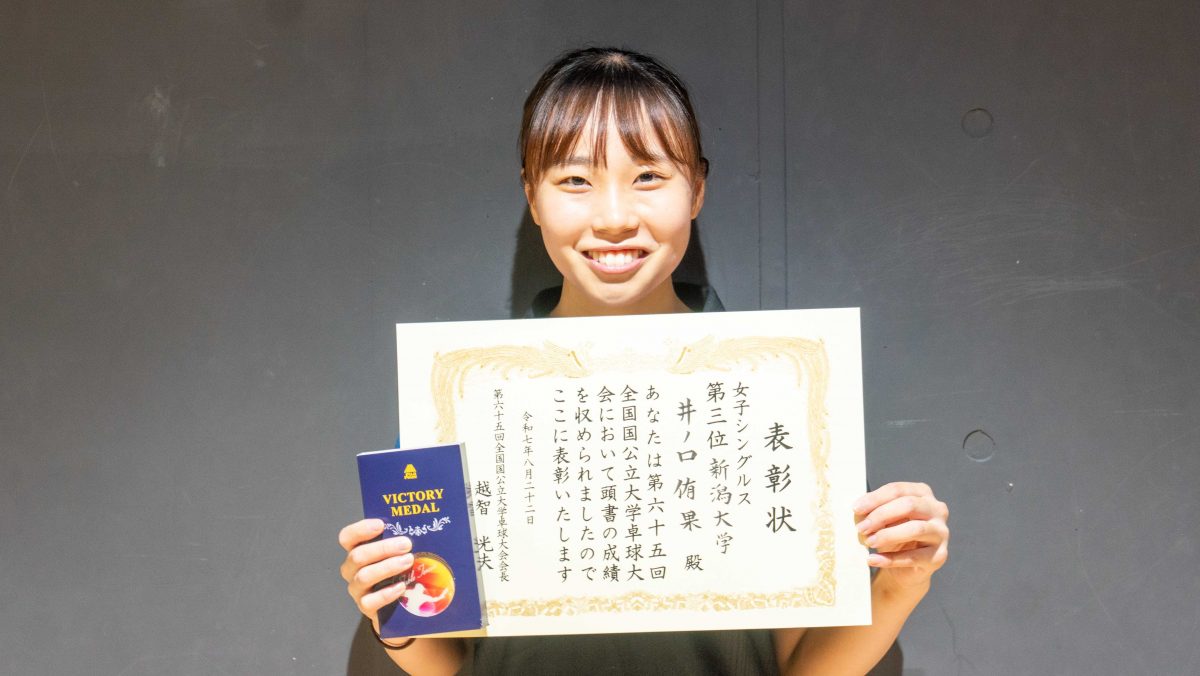 表彰状
女子シングルス
第三位 新潟大学
井ノ口 侑果 殿
あなたは第六十五回
全国国公立大学卓球大
会において頭書の成績
を収められましたので
ここに表彰いたします
令和七年八月二十二日
第六十五回全国国公立大学卓球大会会長
越智 光夫
VICTORY
MEDAL